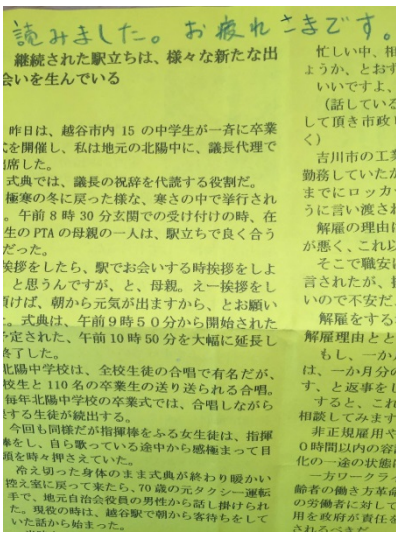 読みました。お疲れさまです。
継続された駅立ちは、様々な新たな出
会いを生んでいる
昨日は、越谷市内 15 の中学生が一斉に卒業
式を開催し、私は地元の北陽中に、議長代理で
出席した。
式典では、議長の祝辞を代読する役割だ。
極寒の冬に戻った様な、寒さの中で挙行され
。午前 8 時 30 分玄関での受け付けの時、在
生の PTA の母親の一人は、駅立ちで良く合う
だった。
挨拶をしたら、駅でお会いする時挨拶をしよ
と思うんですが、と、母親。えー挨拶をし
頂けば、朝から元気が出ますから、とお願い
。式典は、午前９時５０分から開始された
予定された、午前 10 時 50 分を大幅に延長し
終了した。
北陽中学校は、全校生徒の合唱で有名だが、
校生と 110 名の卒業生の送り送られる合唱。
毎年北陽中学校の卒業式では、合唱しながら
する生徒が続出する。
今回も同様だが指揮棒をふる女生徒は、指揮
棒をし、自ら歌っている途中から感極まって目
頭を時々押さえていた。
冷え切った身体のまま式典が終わり暖かい
控え室に戻って来たら、70 歳の元タクシー運転
手で、地元自治会役員の男性から話し掛けられ
た。現役の時は、越谷駅で朝から客待ちをして
いた話から始まった。
忙しい中、
ょうか、とおす
いいですよ、
(話している
して頂き市政
く)
吉川市の工業
勤務していたか
までにロッカ
うに言い渡され
解雇の理由は
が悪く、これ以
そこで職安に
言されたが、
いので不安だ
解雇をする
解雇理由とと
もし、一か月
は、一か月分の
す、と返事をし
すると、これ
相談してみます
非正規雇用や
０時間以内の容
化の一途の状態
一方ワークライ
齢者の働き方革命
の労働者に対して
用を政府が責任を
されるべきだ